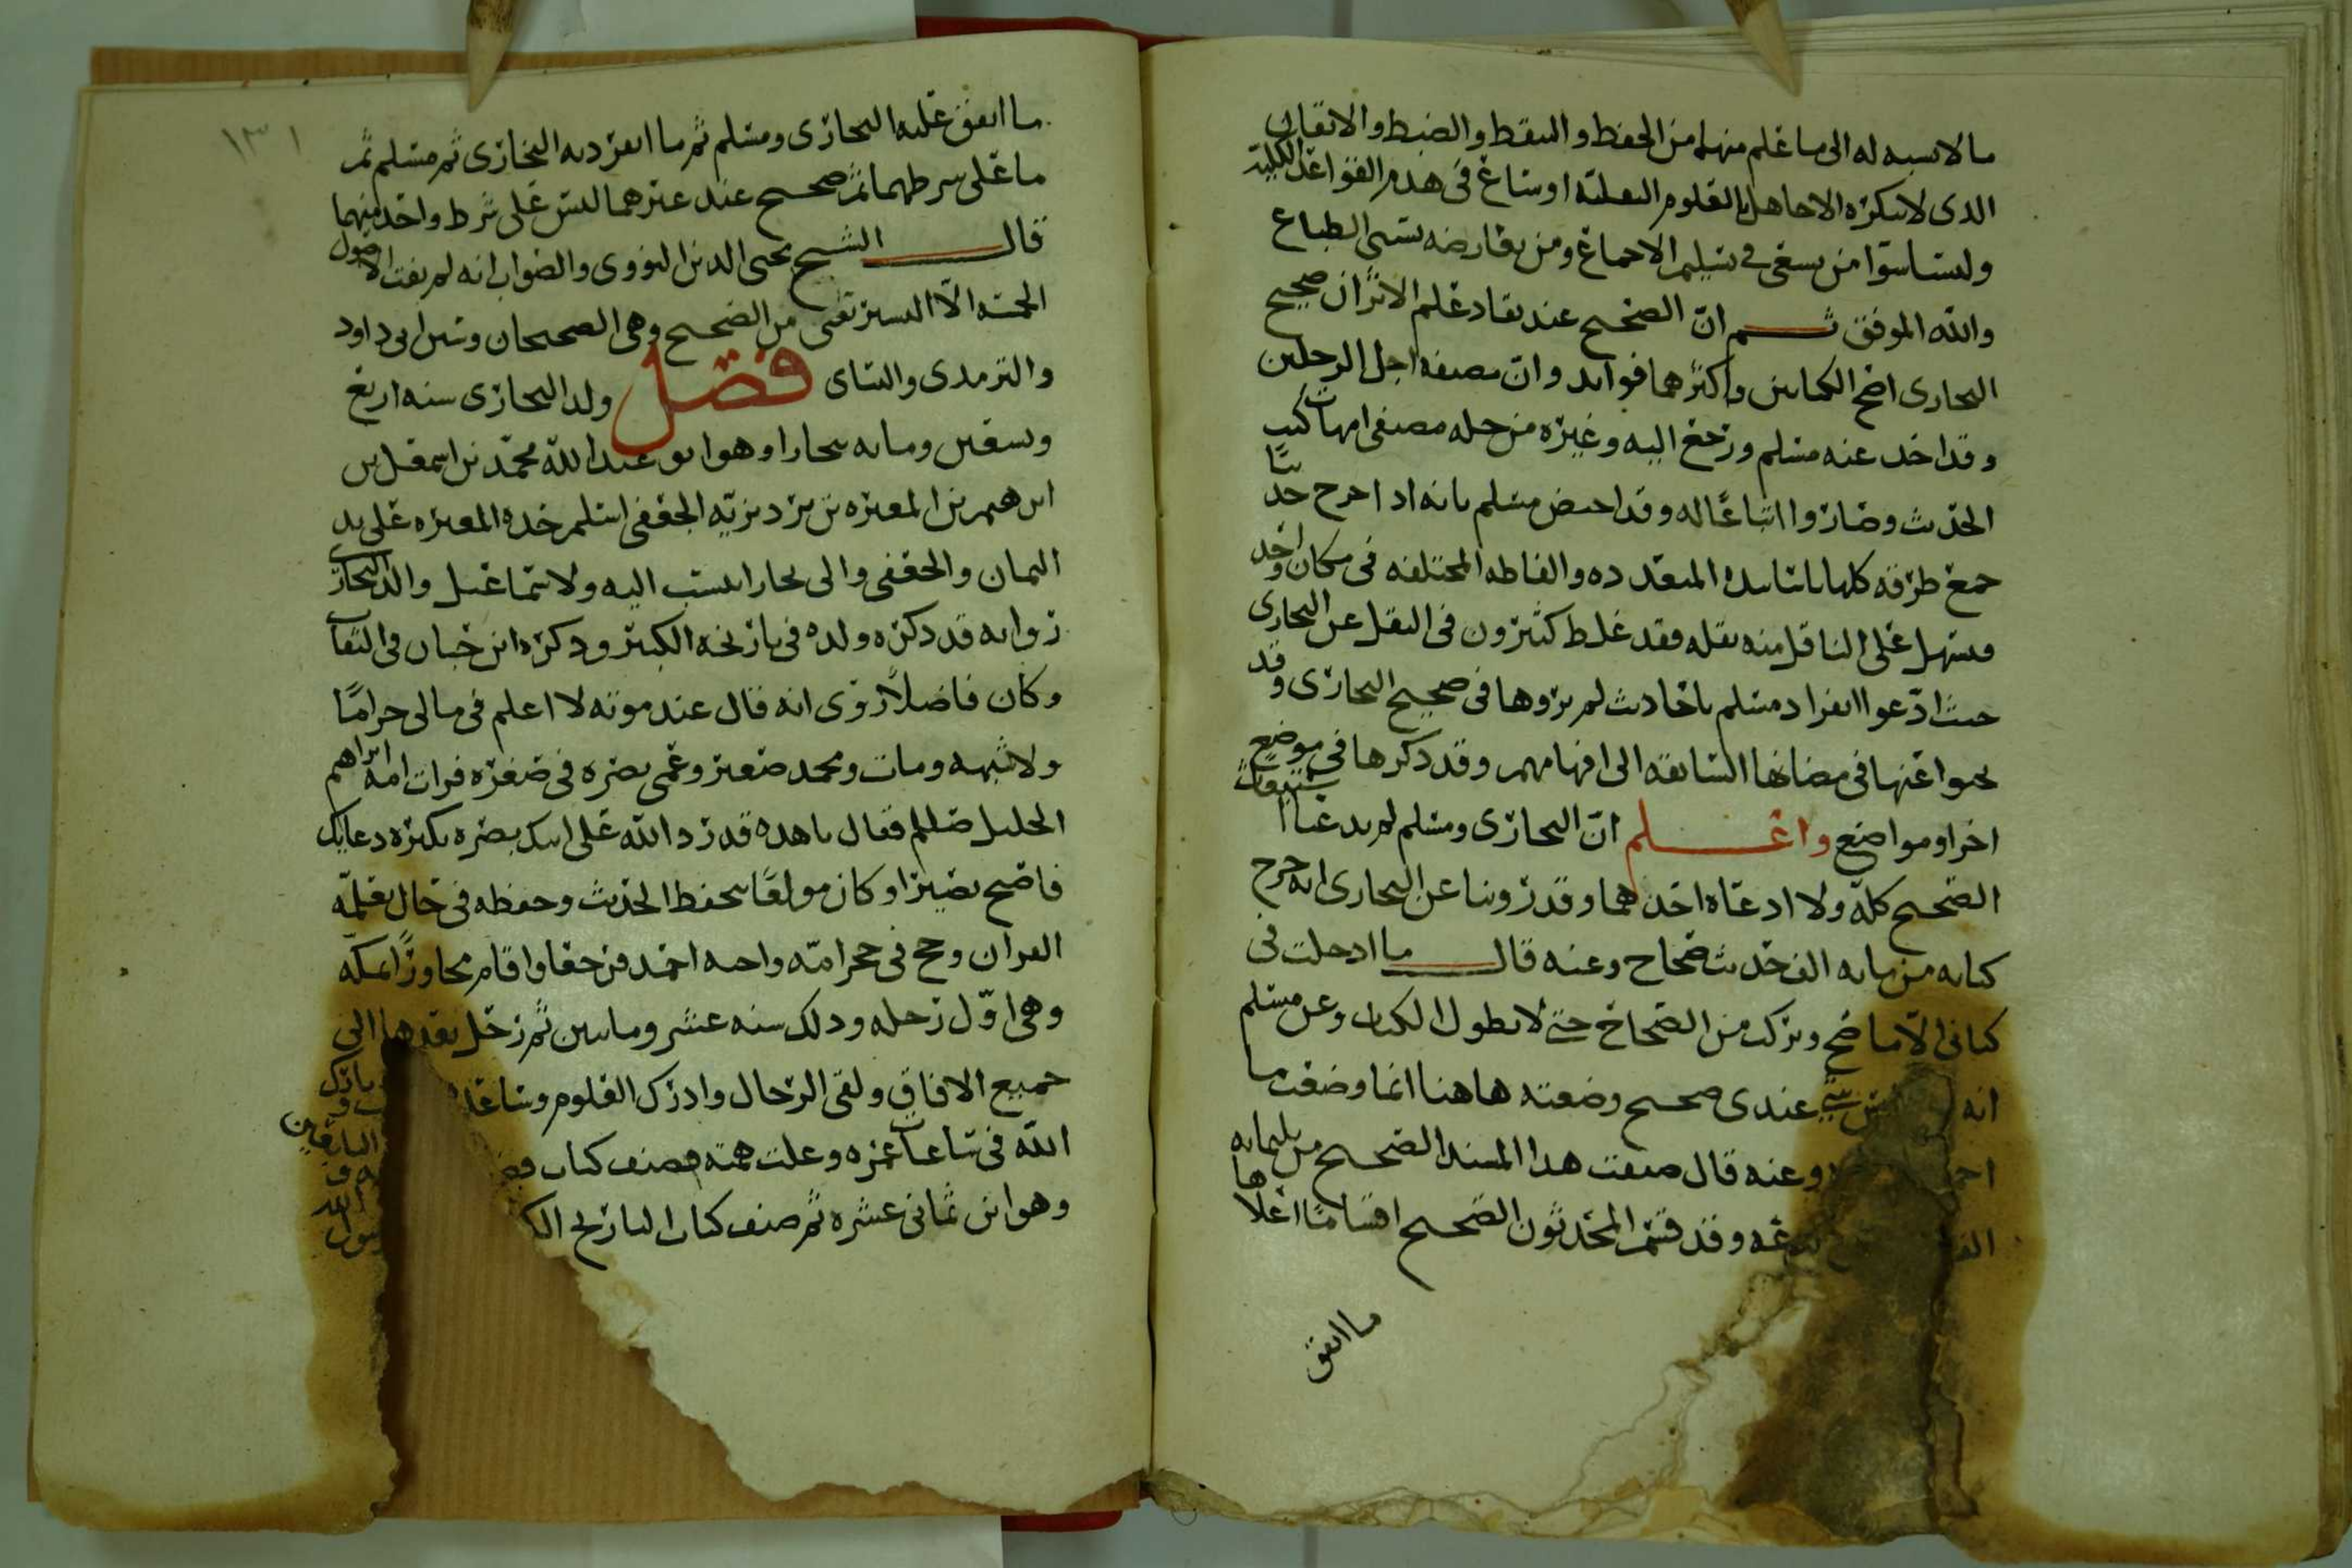 ما لا نسبه له الى ما علم منهما من الحفظ والتيقظ والضبط والاتقان
الذي لا ينكره الا جاهل بالعلوم النقليه او ساع في هدم القواعد الكليه
وليساسوا من يسعى في تسليم الاجماع ومن يعارضه بشيى الطباع
والله الموفق ثم ان الصحيح عند نقاد علم الاثر ان صحيح
البخاري اصح الكتابين واكثرهما فوايد وان مصنفه اجل الرجلين
وقد اخذ عنه مسلم ورجع اليه وغيره من جله مصنفي امهات كتب
الحديث وصاروا اتباعًا له وقد اختص مسلم بانه اذا اخرج حديثًا
جمع طرقه كلها باسانيده المتعدده والفاظه المختلفه في مكان واحد
فيسهل على الناقل منه نقله فقد غلط كثيرون في النقل عن البخاري
حيث ادّعوا انفراد مسلم باحاديث لم يروها في صحيح البخاري وقد
بحثوا عنها في مضانها السابقه الى افهامهم وقد ذكرها في موضع
اخر او مواضع واعلم ان البخاري ومسلم لم يدعيا استيعاب
الصحيح كله ولا ادعاه احدهما وقد روينا عن البخاري انه خرج
كتابه من مايه الف حديث صحاح وعنه قال ما ادخلت في
كتابي الا ما صح وتركت من الصحاح حتى لا يطول الكتاب وعن مسلم
انه شي عندي صحيح وضعته هاهنا انما وضعت ما
وعنه قال صنفت هذا المسند الصحيح من ثلثمايه
وقد قسم المحدثون الصحيح اقسامًا اعلاها
ما اتفق
١٣١
ما اتفق عليه البخاري ومسلم ثم ما انفرد به البخاري ثم مسلم ثم
ما على شرطهما ثم صحيح عند غيرهما ليس على شرط واحد منهما
قال الشيخ محيى الدين النووي والصواب انه لم يفت الاصول
الخمسه الا اليسير تعني من الصحيح وهي الصحيحان وسنن ابي داود
والترمذي والنساي فصل ولد البخاري سنه اربع
وتسعين ومايه ببخارا وهو ابو عبد الله محمد بن اسمعيل بن
ابرهيم بن المغيره بن بردزبه الجعفي اسلم جده المغيره على يد
اليمان والجعفي والي بخارا ينسب اليه ولاسماعيل والد البخاري
روايه قد ذكره ولده في تاريخه الكبير وذكره ابن حبان في الثقات
وكان فاضلًا روى انه قال عند موته لا اعلم في مالي حرامًا
ولا شبهه ومات ومحمد صغير وعمي بصره في صغره فرات امه ابراهيم
الخليل صلى الله عليه وسلم فقال ياهذه قد رد الله على ابنك بصره بكثره دعايك
فاصبح بصيرًا وكان مولعًا بحفظ الحديث وحفظه في حال تعلمه
القران وحج في حجر امه واخيه احمد فرجعا واقام مجاورًا بمكه
وهي اول رحله وذلك سنه عشر وماتين ثم رحل بعدها الى
جميع الافاق ولقى الرجال وادرك العلوم وساعد
الله في ساعات عمره وعلت همته فصنف كتاب
وهو ابن ثماني عشره ثم صنف كتاب التاريخ